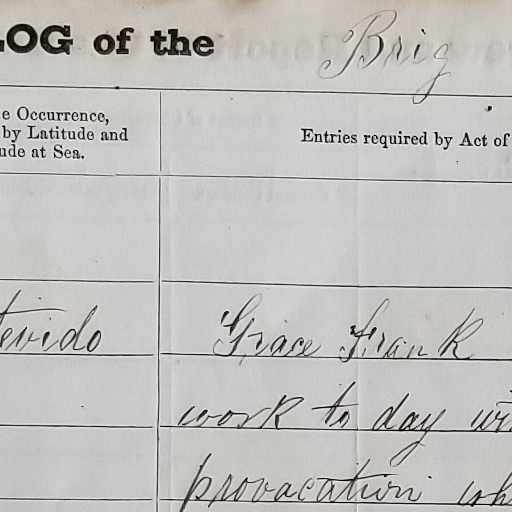 LOG of the Brig
e Occurrence,
by Latitude and
ude at Sea.
Entries required by Act of
tevido
Grace Frank
work to day wi
provacation wh